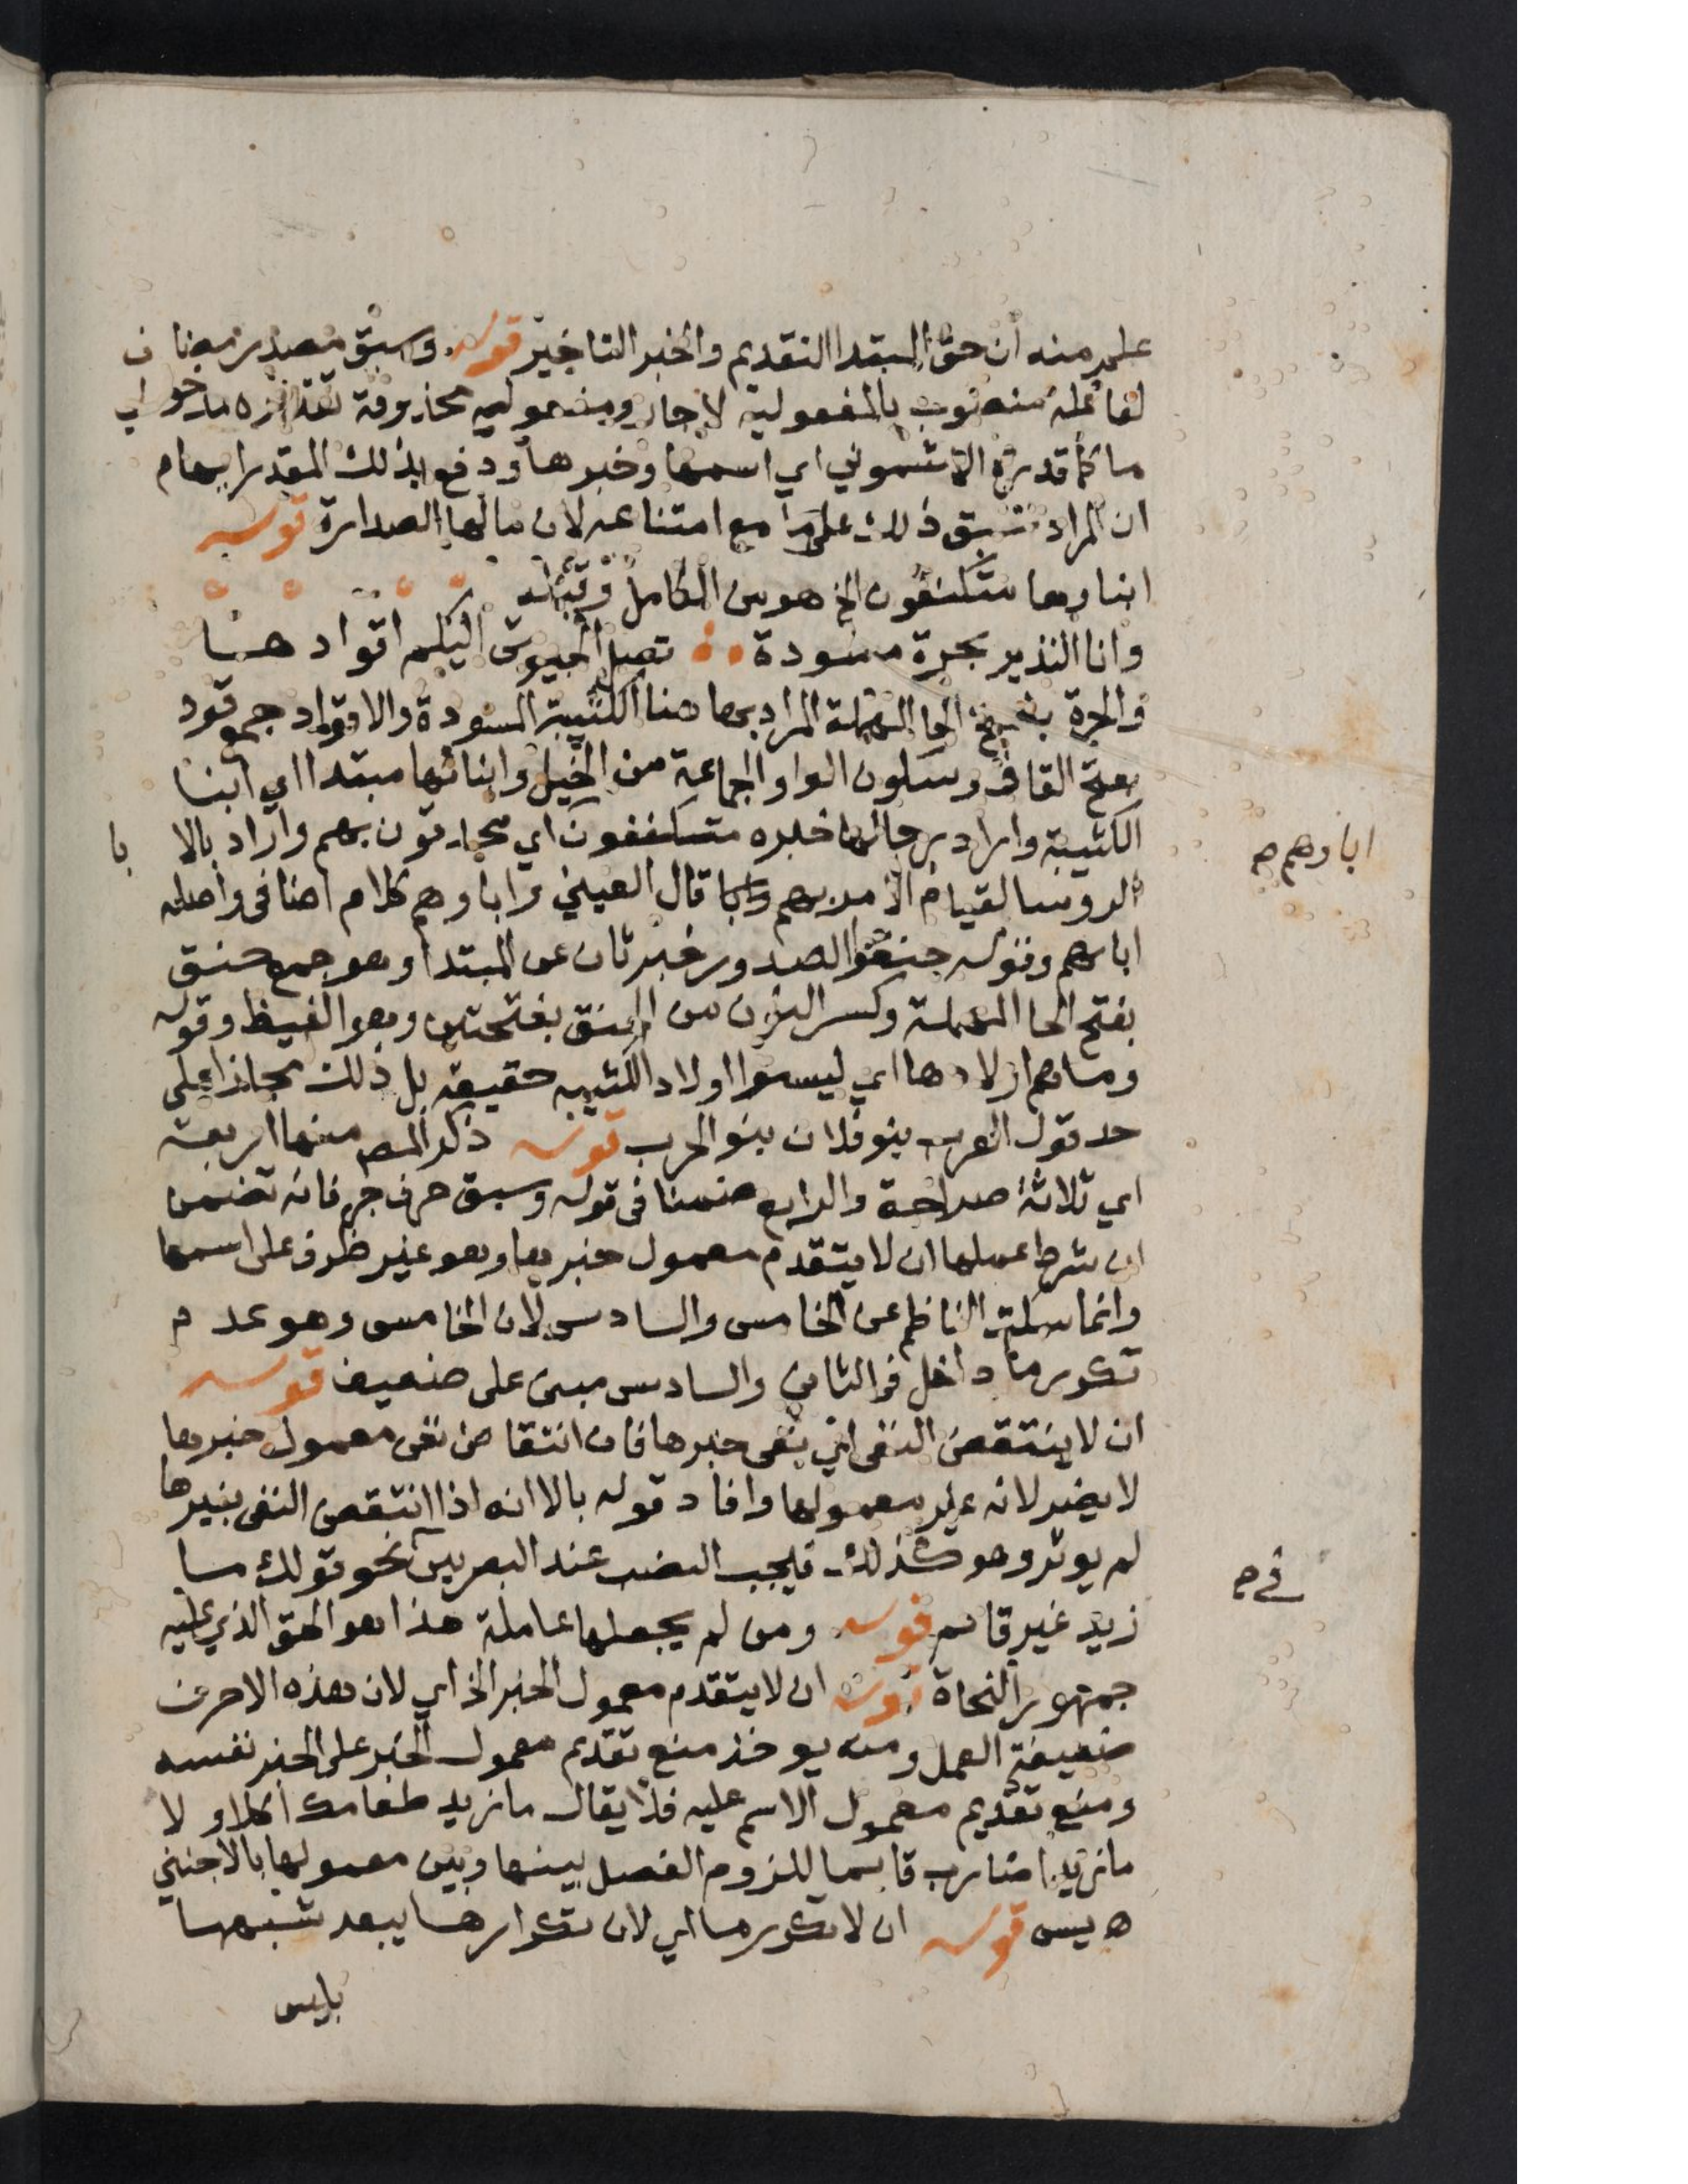 علم منه ان حق المبتدا التقديم والخبر التاخير قوله وسبق مصدر مضاف
لفاعله منصوب بالمفعولية لاجاز ومعموليه محذوفة تقديره مدخولي
ما كما قدره الاشموني اي اسمها وخبرها ودفع بذلك المقدر ايهام
ان المراد سبق ذلك على ما مع امتناعه لان ما لها الصدارة قوله
ابناوها متكنفون الخ هو من الكامل وقبله
وانا النذير بحرة مسودة تصل الجيوش اليكم اقوادها
والحرة بفتح الحا المهملة المراد بها هنا الكتيبة السودة والاقواد جمع قود
بفتح القاف وسكون الواو الجماعة من الخيل وابنائها مبتدا اي ابنا
الكتيبة واراد رجالها خبره متكنفون اي محدقون بهم واراد بالابا
الروسا لقيام الامر بهم قال العيني واباوهم كلام اضافى واصله
اباهم وقوله حنقوا الصدور خبر ثان عن المبتدا وهو جمع حنق
بفتح الحا المهملة وكسر النون من الحنق بفتحتين وهو الغيظ وقوله
وما هم اولادها اي ليسوا اولاد الكتيبه حقيقه بل ذلك مجازا على
حد قول العرب بنو فلان بنو الحرب قوله ذكر المص منها اربعة
اي ثلاثة صراحة والرابع ضمنا فى قوله وسبق حرف جر فانه تضمن
ان شرط عملها ان لا يتقدم معمول خبرها وهو غير ظرف على اسمها
وانما سكت الناظم عن الخامس والسادس لان الخامس وهو عدم
تكرر ما داخل فى الثانى والسادس مبنى على ضعيف قوله
ان لا ينتقض النفى اي نفى خبرها فان انتقاض نفى معمول خبرها
لا يضر لانه غير معمولها وافاد قوله بالا انه اذا انتقض النفى بغيرها
لم يوثر وهو كذلك فيجب النصب عند البصريين نحو قولك ما
زيد غير قايم قوله ومن لم يجعلها عاملة هذا هو الحق الذي عليه
جمهور النحاة قوله ان لا يتقدم معمول الخبر الخ اي لان هذه الاحرف
ضعيفة العمل ومنه يوخذ منع تقديم معمول الخبر على الخبر نفسه
ومنع تقديم معمول الاسم عليه فلا يقال ما زيد طعامك اكلا ولا
ما زيدا ضارب قايما للزوم الفصل بينها وبين معمولها بالاجنبي
ه يس قوله ان لا تكرر ما اي لان تكرارها يبعد شبهها
بليس
اباوهم صح
في صح